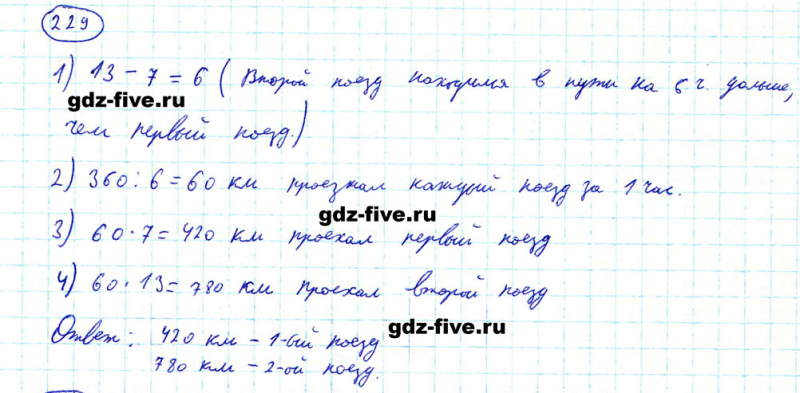 229
1) 13 - 7 = 6 (Второй поезд находился в пути на 6 ч. дольше,
gdz-five.ru
чем первый поезд.)
2) 360 : 6 = 60 км проезжал каждый поезд за 1 час.
gdz-five.ru
3) 60 · 7 = 420 км проехал первый поезд
4) 60 · 13 = 780 км проехал второй поезд
gdz-five.ru
Ответ: 420 км - 1-ый поезд
780 км - 2-ой поезд.